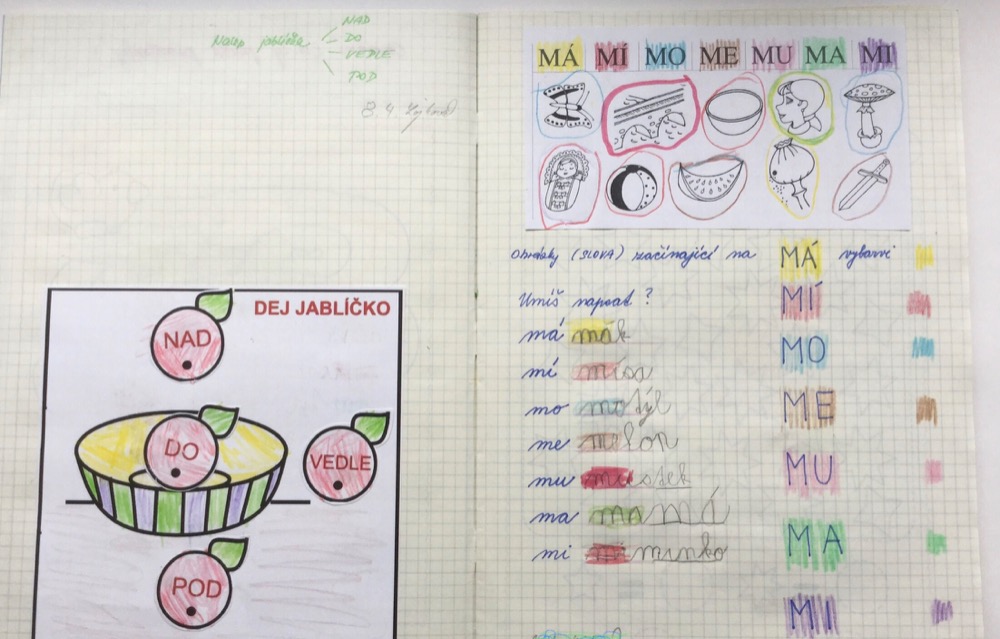 Nalep jablíčka
NAD
DO
VEDLE
POD
8.4
DEJ JABLÍČKO
NAD
DO
VEDLE
POD
MÁ MÍ MO ME MU MA MI
Obrázky (SLOVA) začínající na MÁ vybarvi
Umíš napsat ? MÍ
má mák
mí mísa MO
mo motýl
me melon ME
mu mustek MU
ma mamá
mi mi minko MA
MI